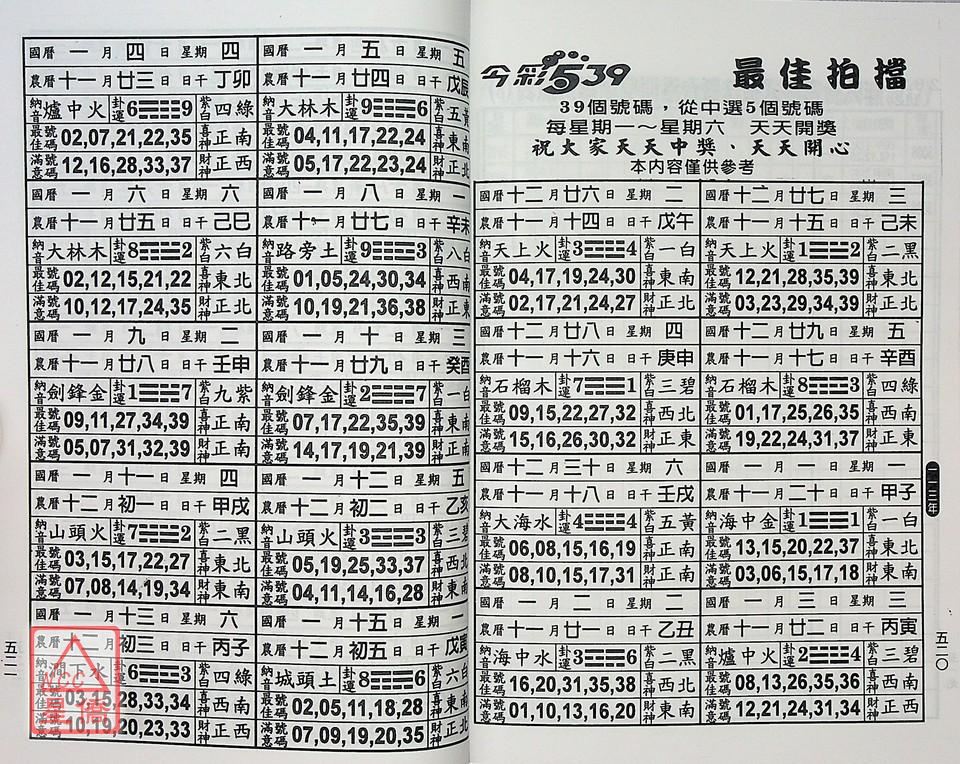 今彩539 最佳拍擋
39個號碼，從中選5個號碼
每星期一～星期六 天天開獎
祝大家天天中獎、天天開心
本內容僅供參考
國曆 十二 月 廿六 日 星期 二
農曆 十一 月 十四 日 日干 戊午
納音 天上火 卦運 3 4 紫白 一白
最佳號碼 04,17,19,24,30 喜神 東南
滿意號碼 02,17,21,24,27 財神 正北
國曆 十二 月 廿七 日 星期 三
農曆 十一 月 十五 日 日干 己未
納音 天上火 卦運 1 2 紫白 二黑
最佳號碼 12,21,28,35,39 喜神 東北
滿意號碼 03,23,29,34,39 財神 正北
國曆 十二 月 廿八 日 星期 四
農曆 十一 月 十六 日 日干 庚申
納音 石榴木 卦運 7 1 紫白 三碧
最佳號碼 09,15,22,27,32 喜神 西北
滿意號碼 15,16,26,30,32 財神 正東
國曆 十二 月 廿九 日 星期 五
農曆 十一 月 十七 日 日干 辛酉
納音 石榴木 卦運 8 3 紫白 四綠
最佳號碼 01,17,25,26,35 喜神 西南
滿意號碼 19,22,24,31,37 財神 正東
國曆 十二 月 三十 日 星期 六
農曆 十一 月 十八 日 日干 壬戌
納音 大海水 卦運 4 4 紫白 五黃
最佳號碼 06,08,15,16,19 喜神 正南
滿意號碼 08,10,15,17,31 財神 正南
國曆 一 月 一 日 星期 一
農曆 十一 月 二十 日 日干 甲子
納音 海中金 卦運 1 1 紫白 一白
最佳號碼 13,15,20,22,37 喜神 東北
滿意號碼 03,06,15,17,18 財神 東南
國曆 一 月 二 日 星期 二
農曆 十一 月 廿一 日 日干 乙丑
納音 海中水 卦運 3 6 紫白 二黑
最佳號碼 16,20,31,35,38 喜神 西北
滿意號碼 01,10,13,16,20 財神 東南
國曆 一 月 三 日 星期 三
農曆 十一 月 廿二 日 日干 丙寅
納音 爐中火 卦運 2 4 紫白 三碧
最佳號碼 08,13,26,35,36 喜神 西南
滿意號碼 12,21,24,31,34 財神 正西
五二〇
國曆 一 月 四 日 星期 四
農曆 十一 月 廿三 日 日干 丁卯
納音 爐中火 卦運 6 9 紫白 四綠
最佳號碼 02,07,21,22,35 喜神 正南
滿意號碼 12,16,28,33,37 財神 正西
國曆 一 月 五 日 星期 五
農曆 十一 月 廿四 日 日干 戊辰
納音 大林木 卦運 9 6 紫白 五黃
最佳號碼 04,11,17,22,24 喜神 東南
滿意號碼 05,17,22,23,24 財神 正北
國曆 一 月 六 日 星期 六
農曆 十一 月 廿五 日 日干 己巳
納音 大林木 卦運 8 2 紫白 六白
最佳號碼 02,12,15,21,22 喜神 東北
滿意號碼 10,12,17,24,35 財神 正北
國曆 一 月 八 日 星期 一
農曆 十一 月 廿七 日 日干 辛未
納音 路旁土 卦運 9 3 紫白 八白
最佳號碼 01,05,24,30,34 喜神 西南
滿意號碼 10,19,21,36,38 財神 正東
國曆 一 月 九 日 星期 二
農曆 十一 月 廿八 日 日干 壬申
納音 劍鋒金 卦運 1 7 紫白 九紫
最佳號碼 09,11,27,34,39 喜神 正南
滿意號碼 05,07,31,32,39 財神 正南
國曆 一 月 十 日 星期 三
農曆 十一 月 廿九 日 日干 癸酉
納音 劍鋒金 卦運 2 7 紫白 一白
最佳號碼 07,17,22,35,39 喜神 東南
滿意號碼 14,17,19,21,39 財神 正南
國曆 一 月 十一 日 星期 四
農曆 十二 月 初一 日 日干 甲戌
納音 山頭火 卦運 7 2 紫白 二黑
最佳號碼 03,15,17,22,27 喜神 東北
滿意號碼 07,08,14,19,34 財神 東南
國曆 一 月 十二 日 星期 五
農曆 十二 月 初二 日 日干 乙亥
納音 山頭火 卦運 3 3 紫白 三碧
最佳號碼 05,19,25,33,37 喜神 西北
滿意號碼 04,11,14,16,28 財神 東南
國曆 一 月 十三 日 星期 六
農曆 十二 月 初三 日 日干 丙子
納音 澗下水 卦運 6 3 紫白 四綠
最佳號碼 03,15,28,33,34 喜神 西南
滿意號碼 10,19,20,23,33 財神 正西
國曆 一 月 十五 日 星期 一
農曆 十二 月 初五 日 日干 戊寅
納音 城頭土 卦運 8 6 紫白 六白
最佳號碼 02,05,11,18,28 喜神 東南
滿意號碼 07,09,19,20,35 財神 正北
五二一